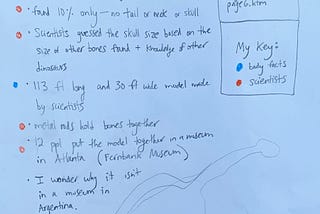 • found 10% only — no tail or neck or skull
• Scientists guessed the skull size based on the
size of other bones found + knowledge of other
dinosaurs
• 113 ft long and 30 ft wide model made
by scientists
• metal rods hold bones together
• 12 ppl put the model together in a museum
in Atlanta (Fernbank Museum)
• I wonder why it isn't
in a museum in
Argentina.
page6.htm
My Key:
body facts
scientists